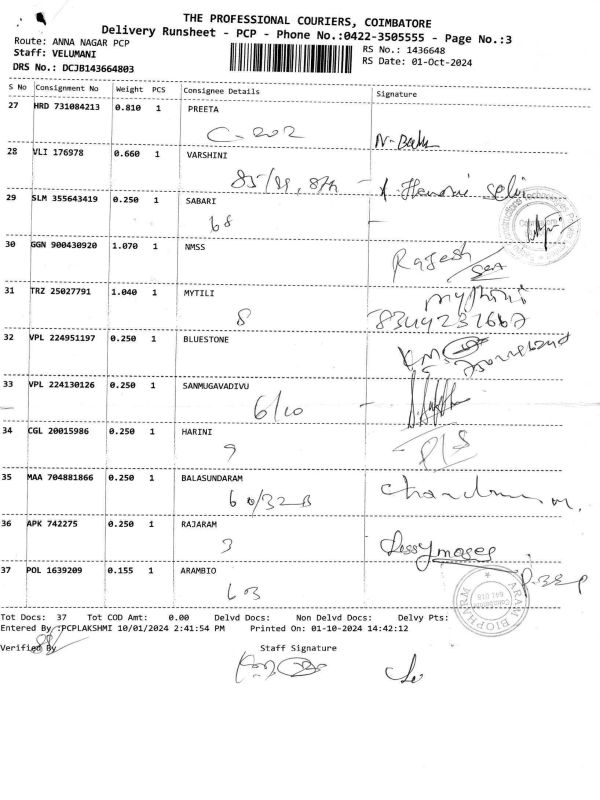 THE PROFESSIONAL COURIERS, COIMBATORE
Delivery Runsheet - PCP - Phone No.:0422-3505555 - Page No.:3
Route: ANNA NAGAR PCP
RS No.: 1436648
Staff: VELUMANI
RS Date: 01-Oct-2024
DRS No.: DCJB143664803
S No Consignment No Weight PCS Consignee Details Signature
27 HRD 731084213 0.810 1 PREETA
C-202
28 VLI 176978 0.660 1 VARSHINI
29 SLM 355643419 0.250 1 SABARI
68
30 GGN 900430920 1.070 1 NMSS
Rajesh
31 TRZ 25027791 1.040 1 MYTILI
8
32 VPL 224951197 0.250 1 BLUESTONE
33 VPL 224130126 0.250 1 SANMUGAVADIVU
6/10
34 CGL 20015986 0.250 1 HARINI
9
35 MAA 704881866 0.250 1 BALASUNDARAM
60/32-B
36 APK 742275 0.250 1 RAJARAM
3
37 POL 1639209 0.155 1 ARAMBIO
63
ARAM BIOPHARM
Coimbatore
641 018
Tot Docs: 37 Tot COD Amt: 0.00 Delvd Docs: Non Delvd Docs: Delvy Pts:
Entered By :PCPLAKSHMI 10/01/2024 2:41:54 PM Printed On: 01-10-2024 14:42:12
Verified By
Staff Signature